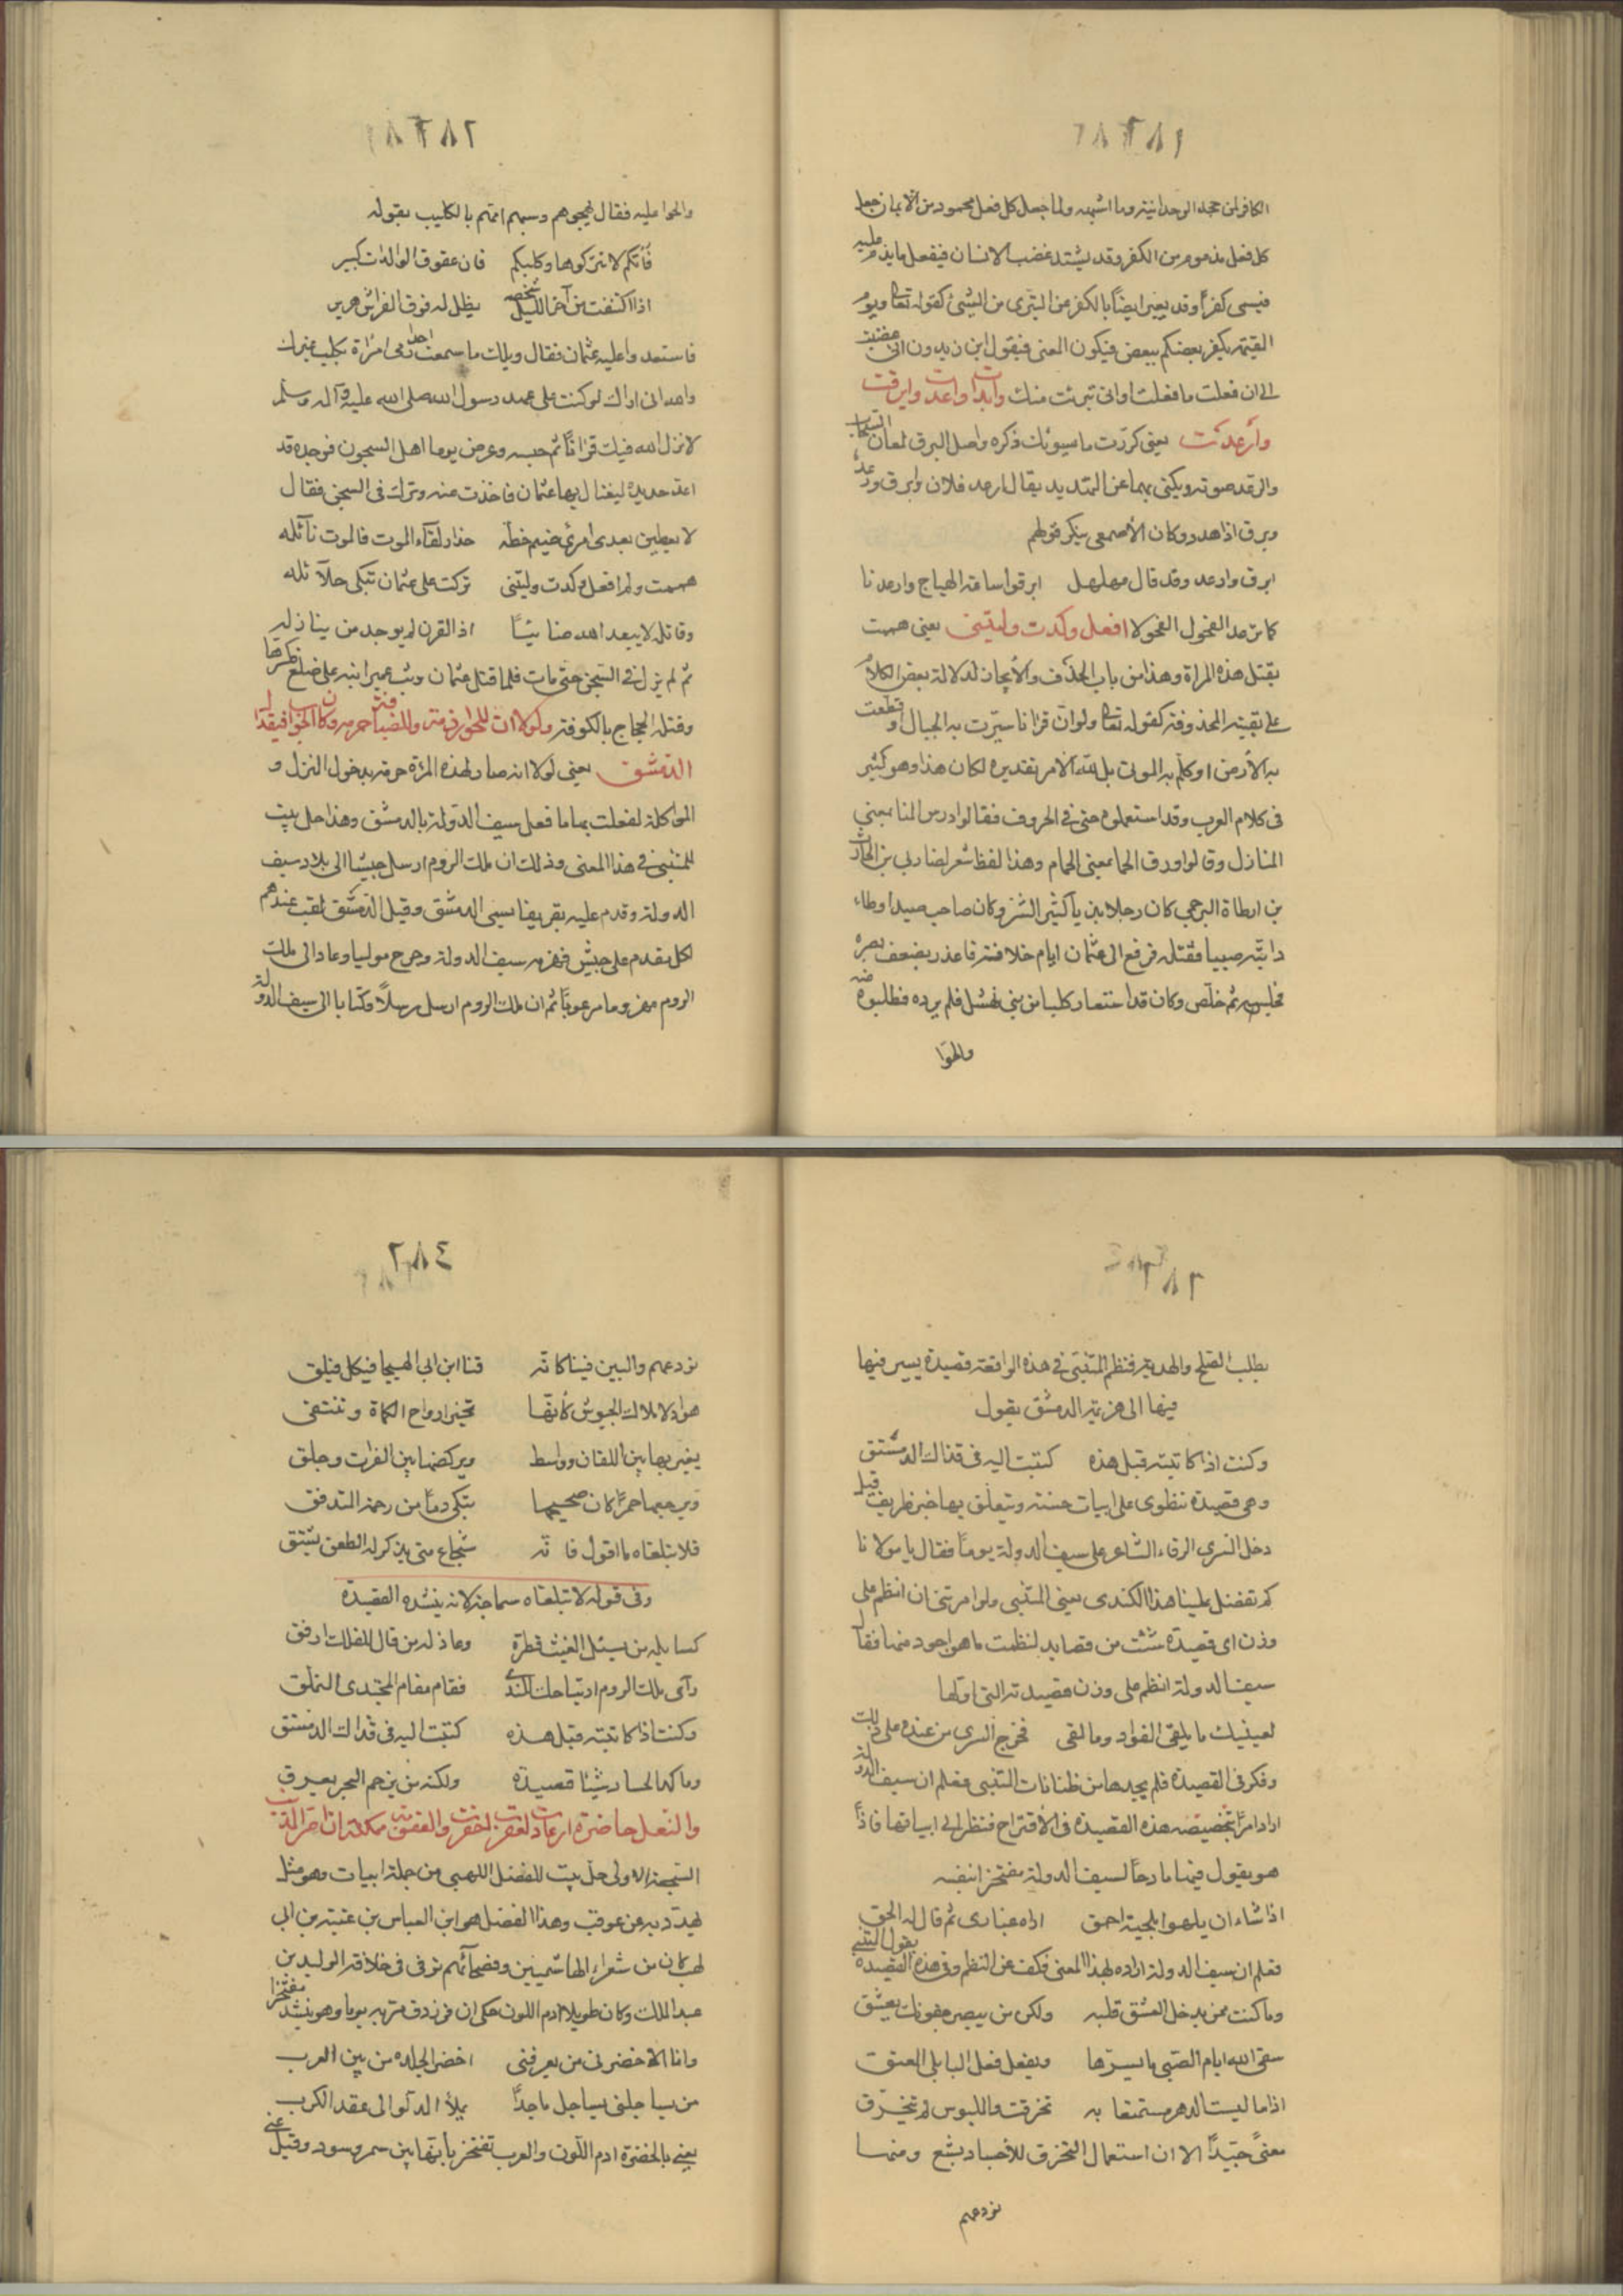 ٢٨١
الكافر لمن جحد الوحدانية وما اشبهه ولما جعل كل فعل محمود من الايمان جعل
كل فعل مذموم من الكفر وقد يشتد غضب الانسان فيفعل ما يذم عليه
فيسمى كفرًا وقد يعبر ايضًا بالكفر عن التبرى من الشئ كقوله تعالى ويوم
القيمة يكفر بعضكم ببعض فيكون المعنى فيقول ابن زيدون انى
الى ان فعلت ما فعلت وانى تبرئت منك وابدات واعدت وابرقت
وأرعدت يعنى كررت ما سيوئك ذكره واصل البرق لمعان السحاب
والرعد صوته ويكنى بهما عن التهديد يقال ارعد فلان وابرق ورعد
وبرق اذا هدد وكان الأصمعى ينكر قولهم
ابرق وارعد وقد قال مهلهل ابرقوا ساعة الهياج وارعدنا
كما ترعد الفحول الفحولا افعل وكدت وليتنى يعنى هممت
بقتل هذه المراة وهذا من باب الحذف والأيجاز لدلالة بعض الكلام
على بقيته المحذوفة كقوله تعالى ولو ان قرانا سيرت به الجبال او قطعت
به الأرض او كلم به الموتى بل لله الامر تقديره لكان هذا وهو كثير
فى كلام العرب وقد استعملوه حتى فى الحروف فقالوا درس المنا بمعنى
المنازل وقالوا ورق الحما بمعنى الحمام وهذا لفظ شعر لضابى بن الحارث
بن ارطاة البرجمى كان رجلا بذيا كثير الشر وكان صاحب صيد اوطاء
دابته صبيا فقتله فرفع الى عثمان ايام خلافته فاعذر بضعف بصره
فحبس ثم خلص وكان قد استعار كلبا من بنى نهشل فلم يرده فطلبوه منه
والحوا
٢٨٢
والحوا عليه فقال يهجوهم وسبهم امتهم بالكليب بقوله
فأمكم لا تتركوها وكلبكم فان عقوق الوالدات كبير
اذا اكتنفت من آخر الليل شخصه يظل له فوق الفراش هرير
فاستعدوا عليه عثمان فقال ويلك ما سمعت احدا رمى امراة بكلب غيرك
والله انى اراك لو كنت على عهد رسول الله صلى الله عليه وآله وسلم
لانزل الله فيك قرانًا ثم حبسه وعرض يوما اهل السجون فوجده قد
اعد حديدة ليغتال بها عثمان فاخذت منه وترك فى السجن فقال
لا يعطين بعدى امرئ ضيم خطة حذار لقآء الموت فالموت نآئله
هممت ولم افعل وكدت وليتنى تركت على عثمان تبكى حلآئله
وقائلة لا يبعد الله ضابئًا اذ القرن لم يوجد من ينازله
ثم لم يزل فى السجن حتى مات فلما قتل عثمان وثب عمير ابنه على ضلع فكسرها
وقتله الحجاج بالكوفة ولولا ان للجوار ذمة وللضيافة حرمة وكان الجواب فى قذال
الدمشق يعنى لولا انه صار لهذه المرة حرمة بدخول المنزل و
المواكلة لفعلت بها ما فعل سيف الدولة بالدمشق وهذا حل بيت
للمتنبى فى هذا المعنى وذلك ان ملك الروم ارسل جيشًا الى بلاد سيف
الدولة وقدم عليه بقريفا يسمى الدمشق وقيل الدمشق لقب عندهم
لكل مقدم على جيش فهزمه سيف الدولة وجرح موليا وعاد الى ملك
الروم مهزوما مرعوبًا ثم ان ملك الروم ارسل رسلًا وكتابا الى سيف الدولة
٢٨٣
يطلب الصلح والهدنة فنظم المتنبى فى هذه الواقعة قصيدة يسير فيها
فيها الى هزيمة الدمشق يقول
وكنت اذا كاتبته قبل هذه كتبت اليه فى قذال الدمشتق
وهى قصيدة تنطوى على ابيات حسنة ويتعلق بها خبر ظريف قيل
دخل السرى الرفاء الشاعر على سيف الدولة يومًا فقال يا مولانا
كم تفضل علينا هذا الكندى يعنى المتنبى ولو امرتنى ان انظم على
وزن اى قصيدة شئت من قصايده لنظمت ما هو اجود منها فقال
سيف الدولة انظم على وزن قصيدته التى اولها
لعينيك ما يلقى الفواد وما لقى فخرج السرى من عنده على ذلك
وفكر فى القصيدة فلم يجدها من طنانات المتنبى فعلم ان سيف الدولة
اراد امرًا بتخصيصه هذه القصيدة فى الأقتراح فنظر الى ابياتها فاذا
هو يقول فيها مادحًا لسيف الدولة مفتخرًا بنفسه
اذا شاء ان يلهوا بلحية احمق اراه غبارى ثم قال له الحق
فعلم ان سيف الدولة اراده لهذا المعنى فكف عن النظم وفى هذه القصيدة يقول المتنبى
وما كنت ممن يدخل العشق قلبه ولكن من يبصر جفونك يعشق
سقى الله ايام الصبى ما يسرها ويفعل فعل البابلى المعتق
اذا ما لبست الدهر مستمتعا به تخرقت والملبوس لم يتخرق
معنى جيدًا الا ان استعمال التخرق للأجساد بشع ومنها
نودعهم
٢٨٤
نودعهم والبين فينا كانه قنا ابن ابى الهيجا فى كل فيلق
هواد لاملاك الجيوش كأنها تخير ارواح الكماة وتنتقى
يغير بها بين اللقان وواسط ويركضها بين الفرات وجلق
ويرجعها حمرًا كان صحيحها يبكى دمًا من رحمة المتدفق
فلا تبلغاه ما اقول فانه شجاع متى يذكر له الطعن يشتق
وفى قوله لا تبلغاه سماجة لانه ينشده القصيدة
كسايله من يسئل الغيث قطرة وعاذله من قال للفلك ارفق
رآى ملك الروم ارتياحك للندى فقام مقام المجتدى المتملق
وكنت اذا كاتبته قبل هذه كتبت اليه فى قذال الدمشتق
وما كمد الحساد شيئا قصدته ولكنه من يزحم البحر يغرق
والنعل حاضرة ان عادت العقرب والعقوبة ممكنة ان اصر المذنب
السجعة الاولى حل بيت للفضل اللهبى من جملة ابيات وهو مثل
يهدد به من عوقب وهذا الفضل هو ابن العباس بن عتبة بن ابى
لهب كان من شعراء الهاشميين وفصحائهم توفى فى خلافة الوليد بن
عبد الملك وكان طويلا ادم اللون حكى ان فرزدق مر به يوما وهو ينشد مفتخرا
وانا الاخضر من يعرفنى اخضر الجلده من بين العرب
من يساجلنى يساجل ماجدًا يملأ الدلو الى عقد الكرب
يعنى بالخضرة ادم اللون والعرب تفتخر بانها بين سمر وسود وقيل عنى